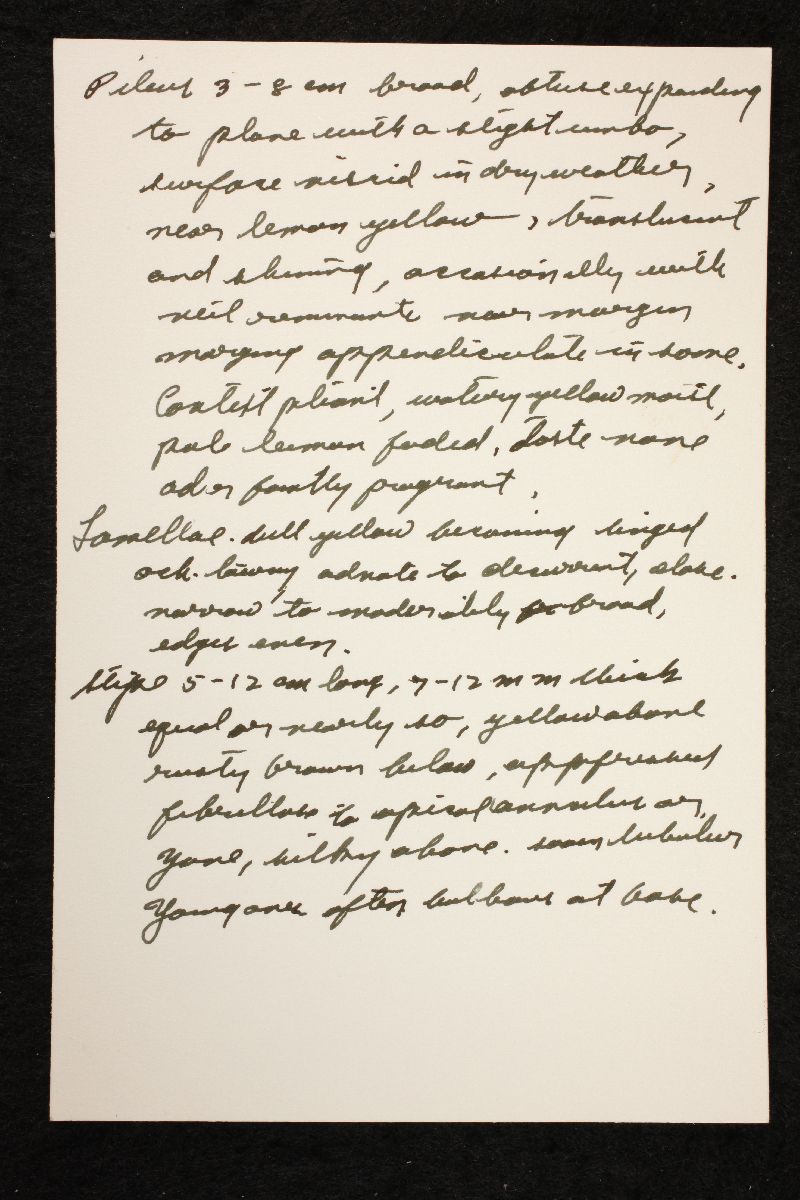 Pileus 3-8 cm broad, obtuse expanding
to plane with a slight umbo,
surface viscid in dry weather,
near lemon yellow, translucent
and shining, occasionally with
veil remnants near margin
margin appendiculate in some.
Context pliant, watery yellow moist,
pale lemon faded, taste none
odor faintly fragrant.
Lamellae. dull yellow becoming tinged
och. tawny adnate to decurrent, close.
narrow to moderately broad,
edges even.
Stipe 5-12 cm long, 7-12 mm thick
equal or nearly so, yellow above
rusty brown below, appressed
fibrillose to apical annulus or
zone, silky above. soon tubular
Young ones often bulbous at base.